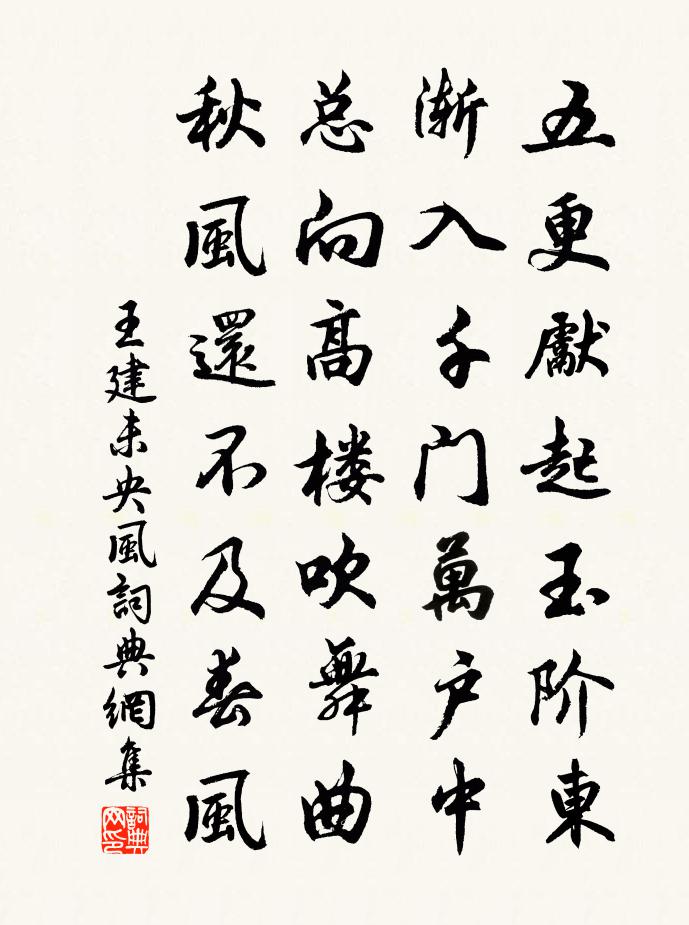 五更獻起玉阶東
漸入千门萬户中
总向高楼吹舞曲
秋風還不及春風
王建未央風詞典網集
詞典网印